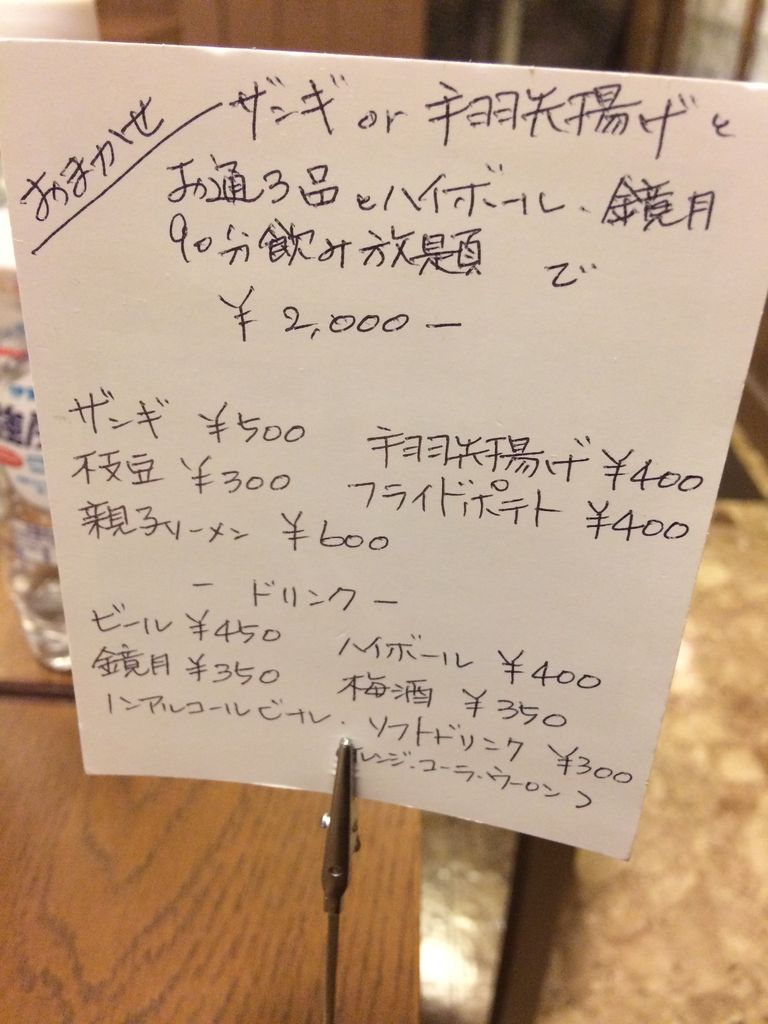 おまかせ
ザンギ or 手羽先揚げと
お通3品とハイボール、鏡月
90分飲み放題 で
¥2,000ー
ザンギ ¥500
手羽先揚げ ¥400
枝豆 ¥300
フライドポテト ¥400
親子ソーメン ¥600
ー ドリンク ー
ビール ¥450
ハイボール ¥400
鏡月 ¥350
梅酒 ¥350
ノンアルコールビール・ソフトドリンク ¥300
レンジ・コーラ・ウーロン)